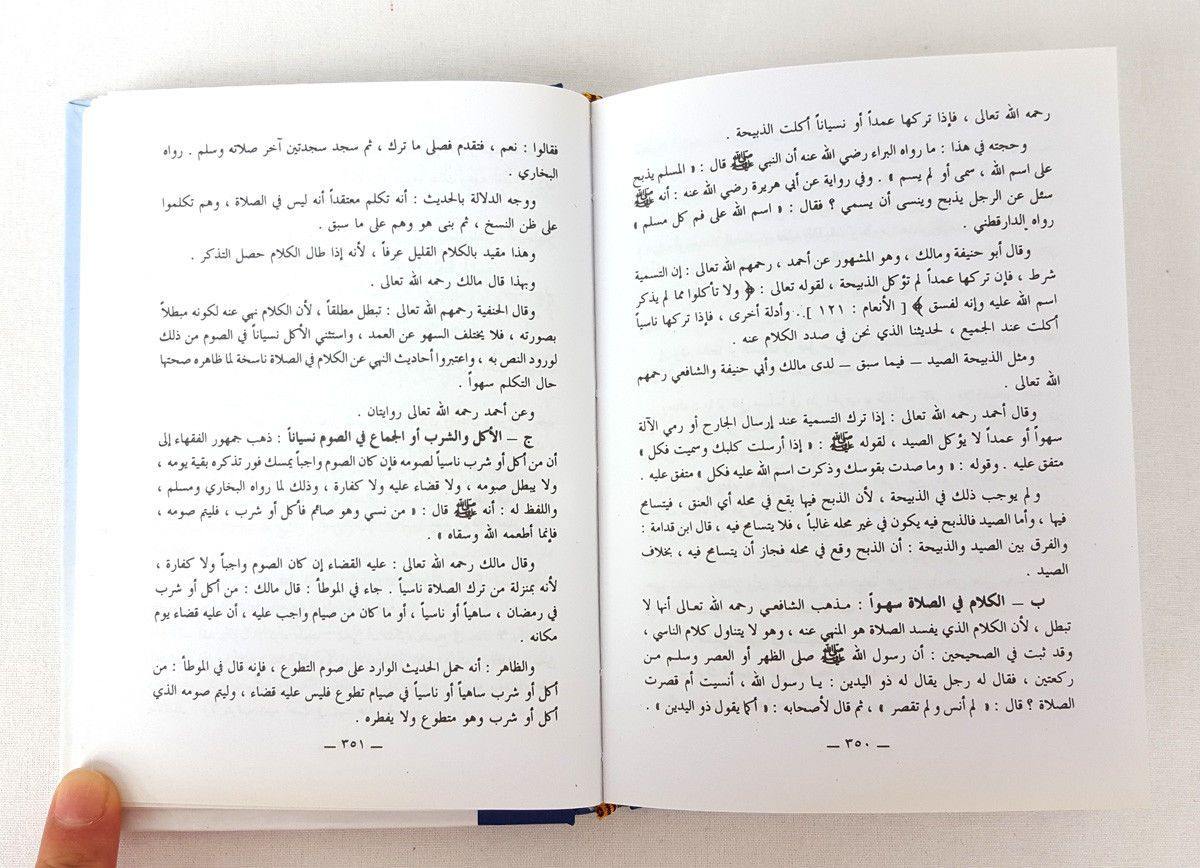 رحمه الله تعالى ، فإذا تركها عمداً أو نسياناً أكلت الذبيحة .
وحجته في هذا : ما رواه البراء رضي الله عنه أن النبي ﷺ قال : « المسلم يذبح
على اسم الله ، سمى أو لم يسم » . وفي رواية عن أبي هريرة رضي الله عنه : أنه ﷺ
سئل عن الرجل يذبح وينسى أن يسمي ؟ فقال : « اسم الله على فم كل مسلم »
رواه الدارقطني .
وقال أبو حنيفة ومالك ، وهو المشهور عن أحمد ، رحمهم الله تعالى : إن التسمية
شرط ، فإن تركها عمداً لم تؤكل الذبيحة ، لقوله تعالى : ﴿ ولا تأكلوا مما لم يذكر
اسم الله عليه وإنه لفسق ﴾ [ الأنعام : ١٢١ ] . وأدلة أخرى ، فإذا تركها ناسياً
أكلت عند الجميع ، لحديثنا الذي نحن في صدد الكلام عنه .
ومثل الذبيحة الصيد ــ فيما سبق ــ لدى مالك وأبي حنيفة والشافعي رحمهم
الله تعالى .
وقال أحمد رحمه الله تعالى : إذا ترك التسمية عند إرسال الجارح أو رمي الآلة
سهواً أو عمداً لا يؤكل الصيد ، لقوله ﷺ : « إذا أرسلت كلبك وسميت فكل »
متفق عليه . وقوله : « وما صدت بقوسك وذكرت اسم الله عليه فكل » متفق عليه .
ولم يوجب ذلك في الذبيحة ، لأن الذبح فيها يقع في محله أي العنق ، فيتسامح
فيها ، وأما الصيد فالذبح فيه يكون في غير محله غالباً ، فلا يتسامح فيه ، قال ابن قدامة :
والفرق بين الصيد والذبيحة : أن الذبح وقع في محله فجاز أن يتسامح فيه ، بخلاف
الصيد .
ب ــ الكلام في الصلاة سهواً : مذهب الشافعي رحمه الله تعالى أنها لا
تبطل ، لأن الكلام الذي يفسد الصلاة هو المنهي عنه ، وهو لا يتناول كلام الناسي ،
وقد ثبت في الصحيحين : أن رسول الله ﷺ صلى الظهر أو العصر وسلم من
ركعتين ، فقال له رجل يقال له ذو اليدين : يا رسول الله ، أنسيت أم قصرت
الصلاة ؟ قال : « لم أنس ولم تقصر » ، ثم قال لأصحابه : « أكما يقول ذو اليدين » .
ــ ٣٥٠ ــ
فقالوا : نعم ، فتقدم فصلى ما ترك ، ثم سجد سجدتين آخر صلاته وسلم . رواه
البخاري .
ووجه الدلالة بالحديث : أنه تكلم معتقداً أنه ليس في الصلاة ، وهم تكلموا
على ظن النسخ ، ثم بنى هو وهم على ما سبق .
وهذا مقيد بالكلام القليل عرفاً ، لأنه إذا طال الكلام حصل التذكر .
وبهذا قال مالك رحمه الله تعالى .
وقال الحنفية رحمهم الله تعالى : تبطل مطلقاً ، لأن الكلام نهي عنه لكونه مبطلاً
بصورته ، فلا يختلف السهو عن العمد ، واستثني الأكل نسياناً في الصوم من ذلك
لورود النص به ، واعتبروا أحاديث النهي عن الكلام في الصلاة ناسخة لما ظاهره صحتها
حال التكلم سهواً .
وعن أحمد رحمه الله تعالى روايتان .
ج ــ الأكل والشرب أو الجماع في الصوم نسياناً : ذهب جمهور الفقهاء إلى
أن من أكل أو شرب ناسياً لصومه فإن كان الصوم واجباً يمسك فور تذكره بقية يومه ،
ولا يبطل صومه ، ولا قضاء عليه ولا كفارة ، وذلك لما رواه البخاري ومسلم ،
واللفظ له : أنه ﷺ قال : « من نسي وهو صائم فأكل أو شرب ، فليتم صومه ،
فإنما أطعمه الله وسقاه » .
وقال مالك رحمه الله تعالى : عليه القضاء إن كان الصوم واجباً ولا كفارة ،
لأنه بمنزلة من ترك الصلاة ناسياً . جاء في الموطأ : قال مالك : من أكل أو شرب
في رمضان ، ساهياً أو ناسياً ، أو ما كان من صيام واجب عليه ، أن عليه قضاء يوم
مكانه .
والظاهر : أنه حمل الحديث الوارد على صوم التطوع ، فإنه قال في الموطأ : من
أكل أو شرب ساهياً أو ناسياً في صيام تطوع فليس عليه قضاء ، وليتم صومه الذي
أكل أو شرب وهو متطوع ولا يفطره .
ــ ٣٥١ ــ